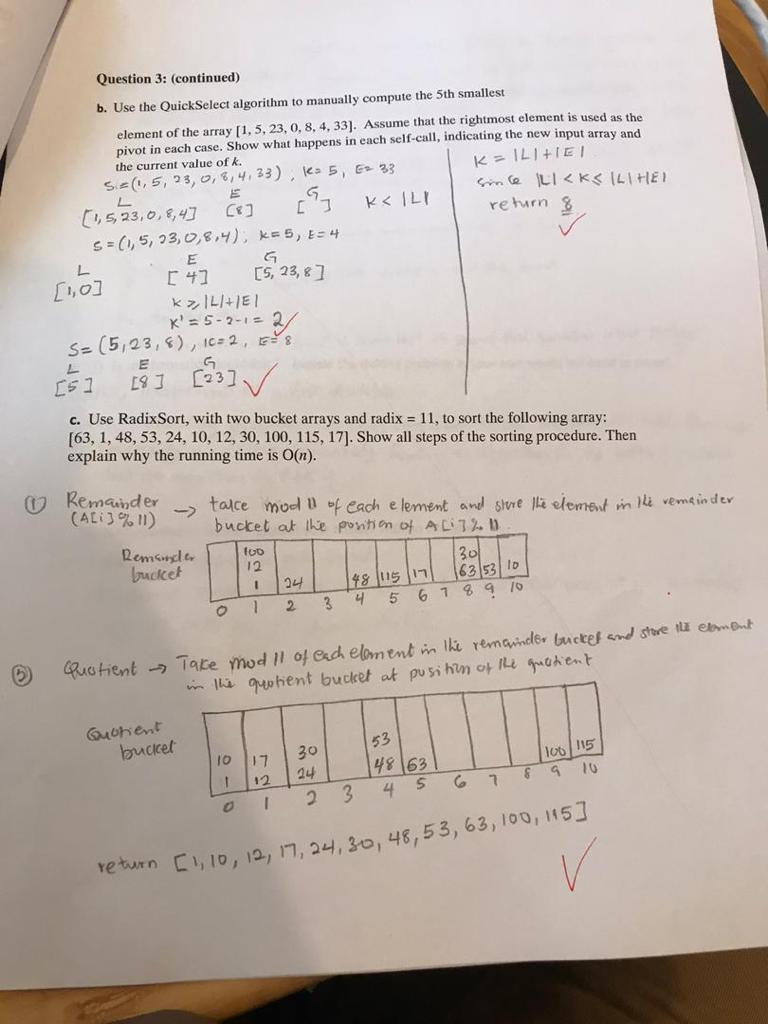 Question 3: (continued)
b. Use the QuickSelect algorithm to manually compute the 5th smallest
element of the array [1, 5, 23, 0, 8, 4, 33]. Assume that the rightmost element is used as the
pivot in each case. Show what happens in each self-call, indicating the new input array and
the current value of k.
S = (1, 5, 23, 0, 8, 4, 33), k = 5, E = 33
L E G
[1, 5, 23, 0, 8, 4] [8] [ ] K < |L|
S = (1, 5, 23, 0, 8, 4), k = 5, E = 4
L E G
[1, 0] [4] [5, 23, 8]
K ≥ |L| + |E|
K' = 5 - 2 - 1 = 2
S = (5, 23, 8), k = 2, E = 8
L E G
[5] [8] [23]
K = |L| + |E|
Since |L| < K ≤ |L| + |E|
return 8
c. Use RadixSort, with two bucket arrays and radix = 11, to sort the following array:
[63, 1, 48, 53, 24, 10, 12, 30, 100, 115, 17]. Show all steps of the sorting procedure. Then
explain why the running time is O(n).
① Remainder → take mod 11 of each element and store the element in the remainder
(A[i] % 11) bucket at the position of A[i] % 11
Remainder
bucket
100 30
12
1 24 48 115 17 63 53 10
0 1 2 3 4 5 6 7 8 9 10
② Quotient → Take mod 11 of each element in the remainder bucket and store the element
in the quotient bucket at position of the quotient
Quotient
bucket
10 17 30 53
1 12 24 48 63 100 115
0 1 2 3 4 5 6 7 8 9 10
return [1, 10, 12, 17, 24, 30, 48, 53, 63, 100, 115]